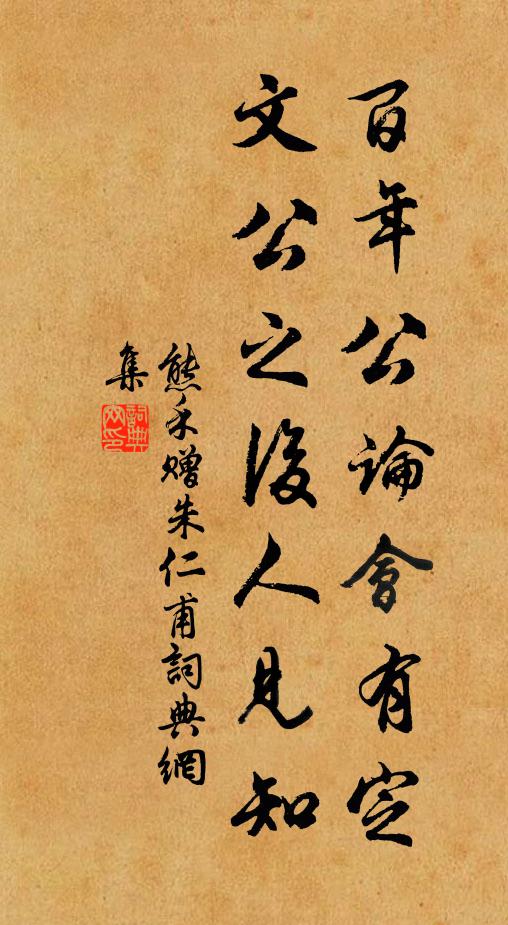 百年公論會有定
文公之後人見知
熊禾贈朱仁甫詞典網
集
詞典網印